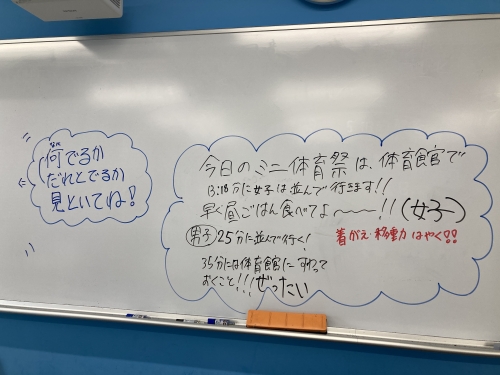 何でるか
だれとでるか
見といてね!
今日のミニ体育祭は、体育館で
13:18分に女子は並んで行きます!!
早く昼ごはん食べてよ〜〜〜!!(女子)
男子 25分に並んで行く! 着がえ 移動 はやく!!
35分には体育館に すわって
おくこと!!!ぜったい